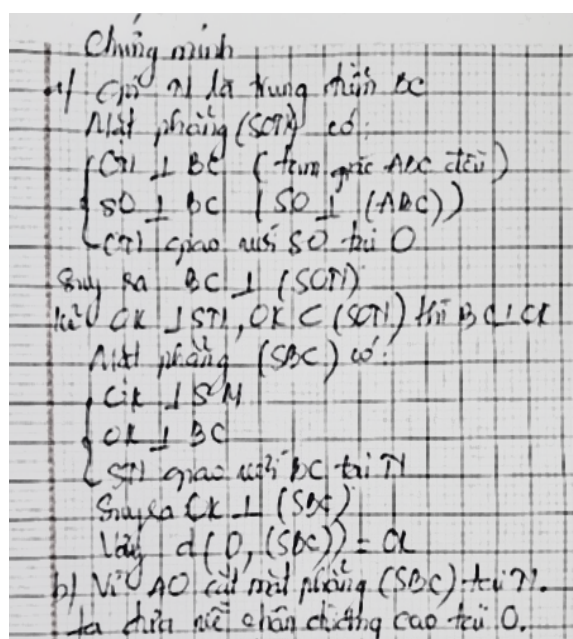 Chứng minh
a) Gọi M là trung điểm BC
Mặt phẳng (SOM) có:
OM ⊥ BC (tam giác ABC đều)
SO ⊥ BC (SO ⊥ (ABC))
OM giao với SO tại O
Suy ra BC ⊥ (SOM)
Kẻ OK ⊥ SM, OK ⊂ (SOM) thì BC ⊥ OK
Mặt phẳng (SBC) có:
OK ⊥ SM
OK ⊥ BC
SM giao với BC tại M
Suy ra OK ⊥ (SBC)
Vậy d(O, (SBC)) = OK
b) Vì AO cắt mặt phẳng (SBC) tại M.
ta đưa về chân đường cao tại O.